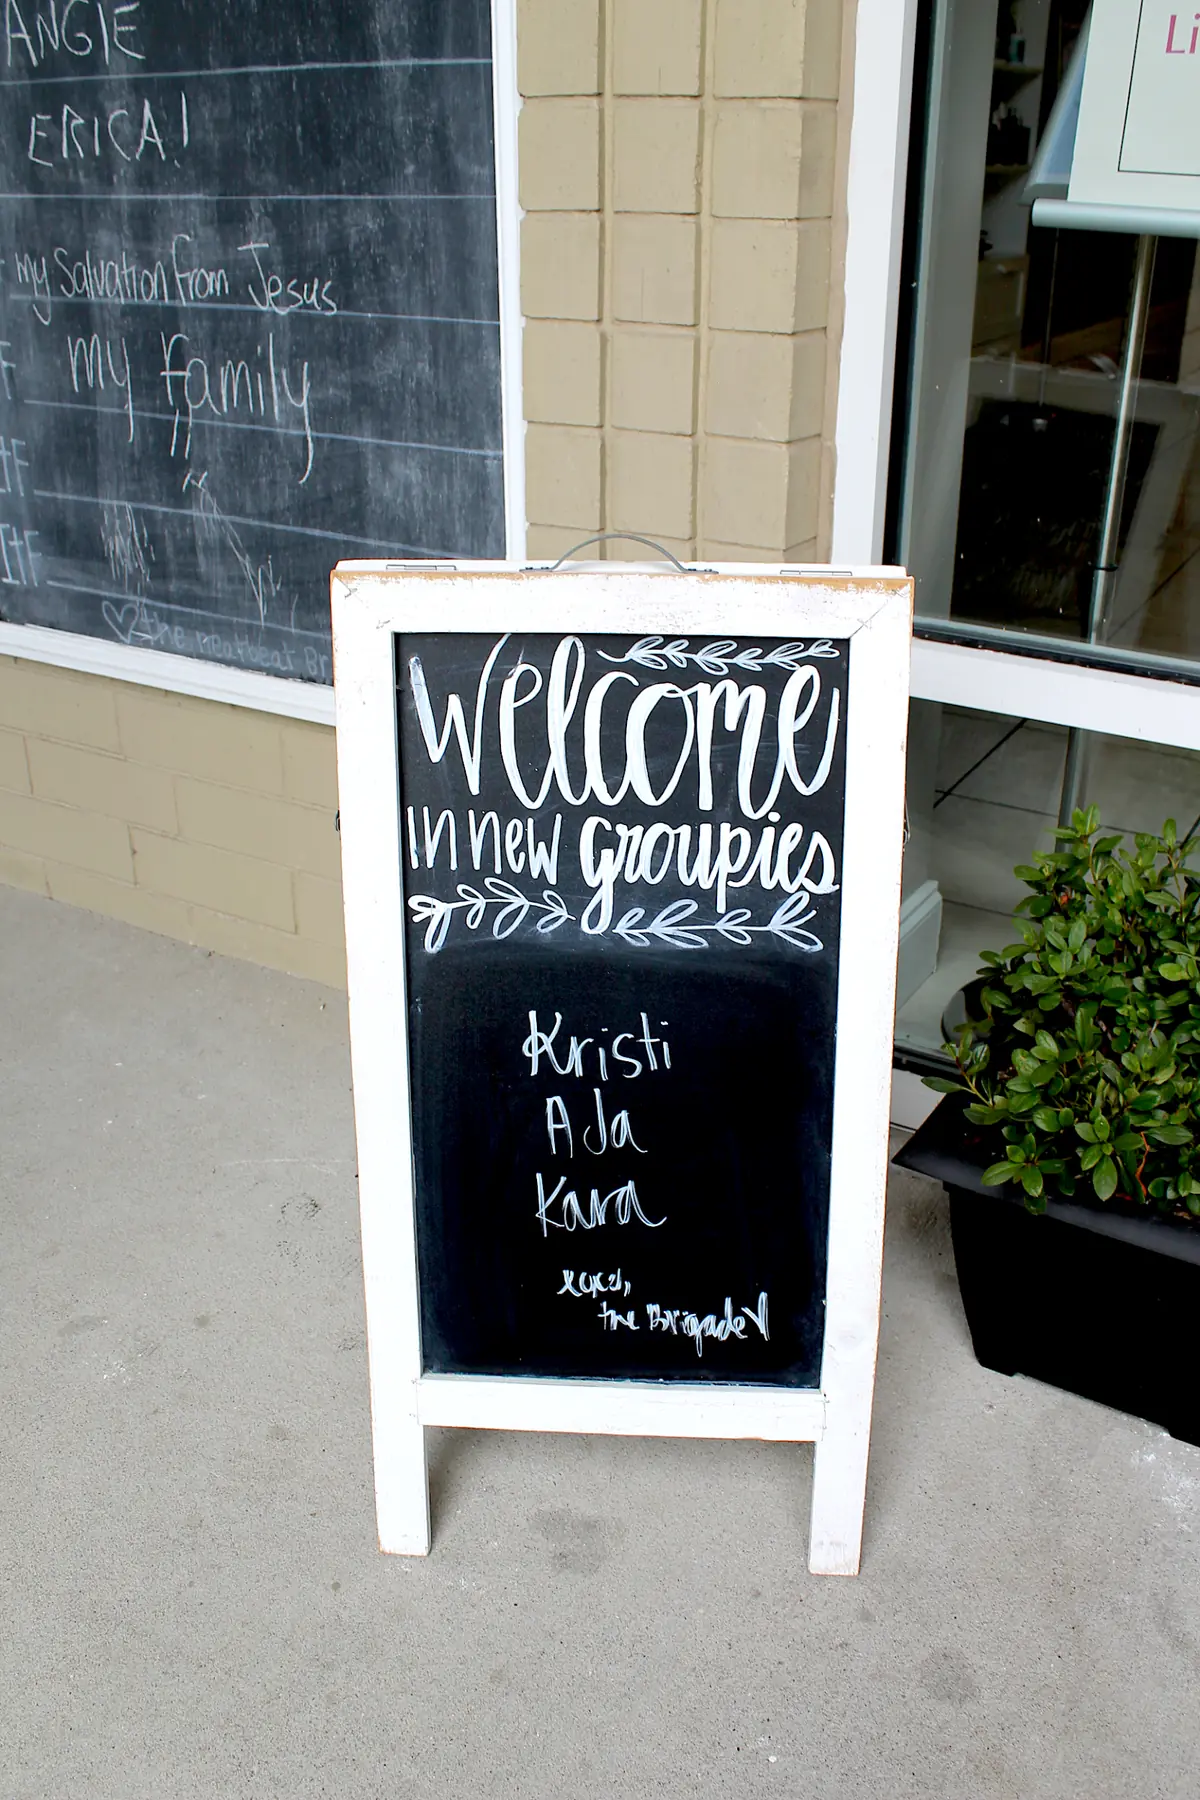 ANGIE
ERICA!
my salvation from Jesus
F my family
ItF
ItF
the neatbeat Br
Li
Welcome
in new groupies
Kristi
Ada
Kara
xoxo,
the Brigade